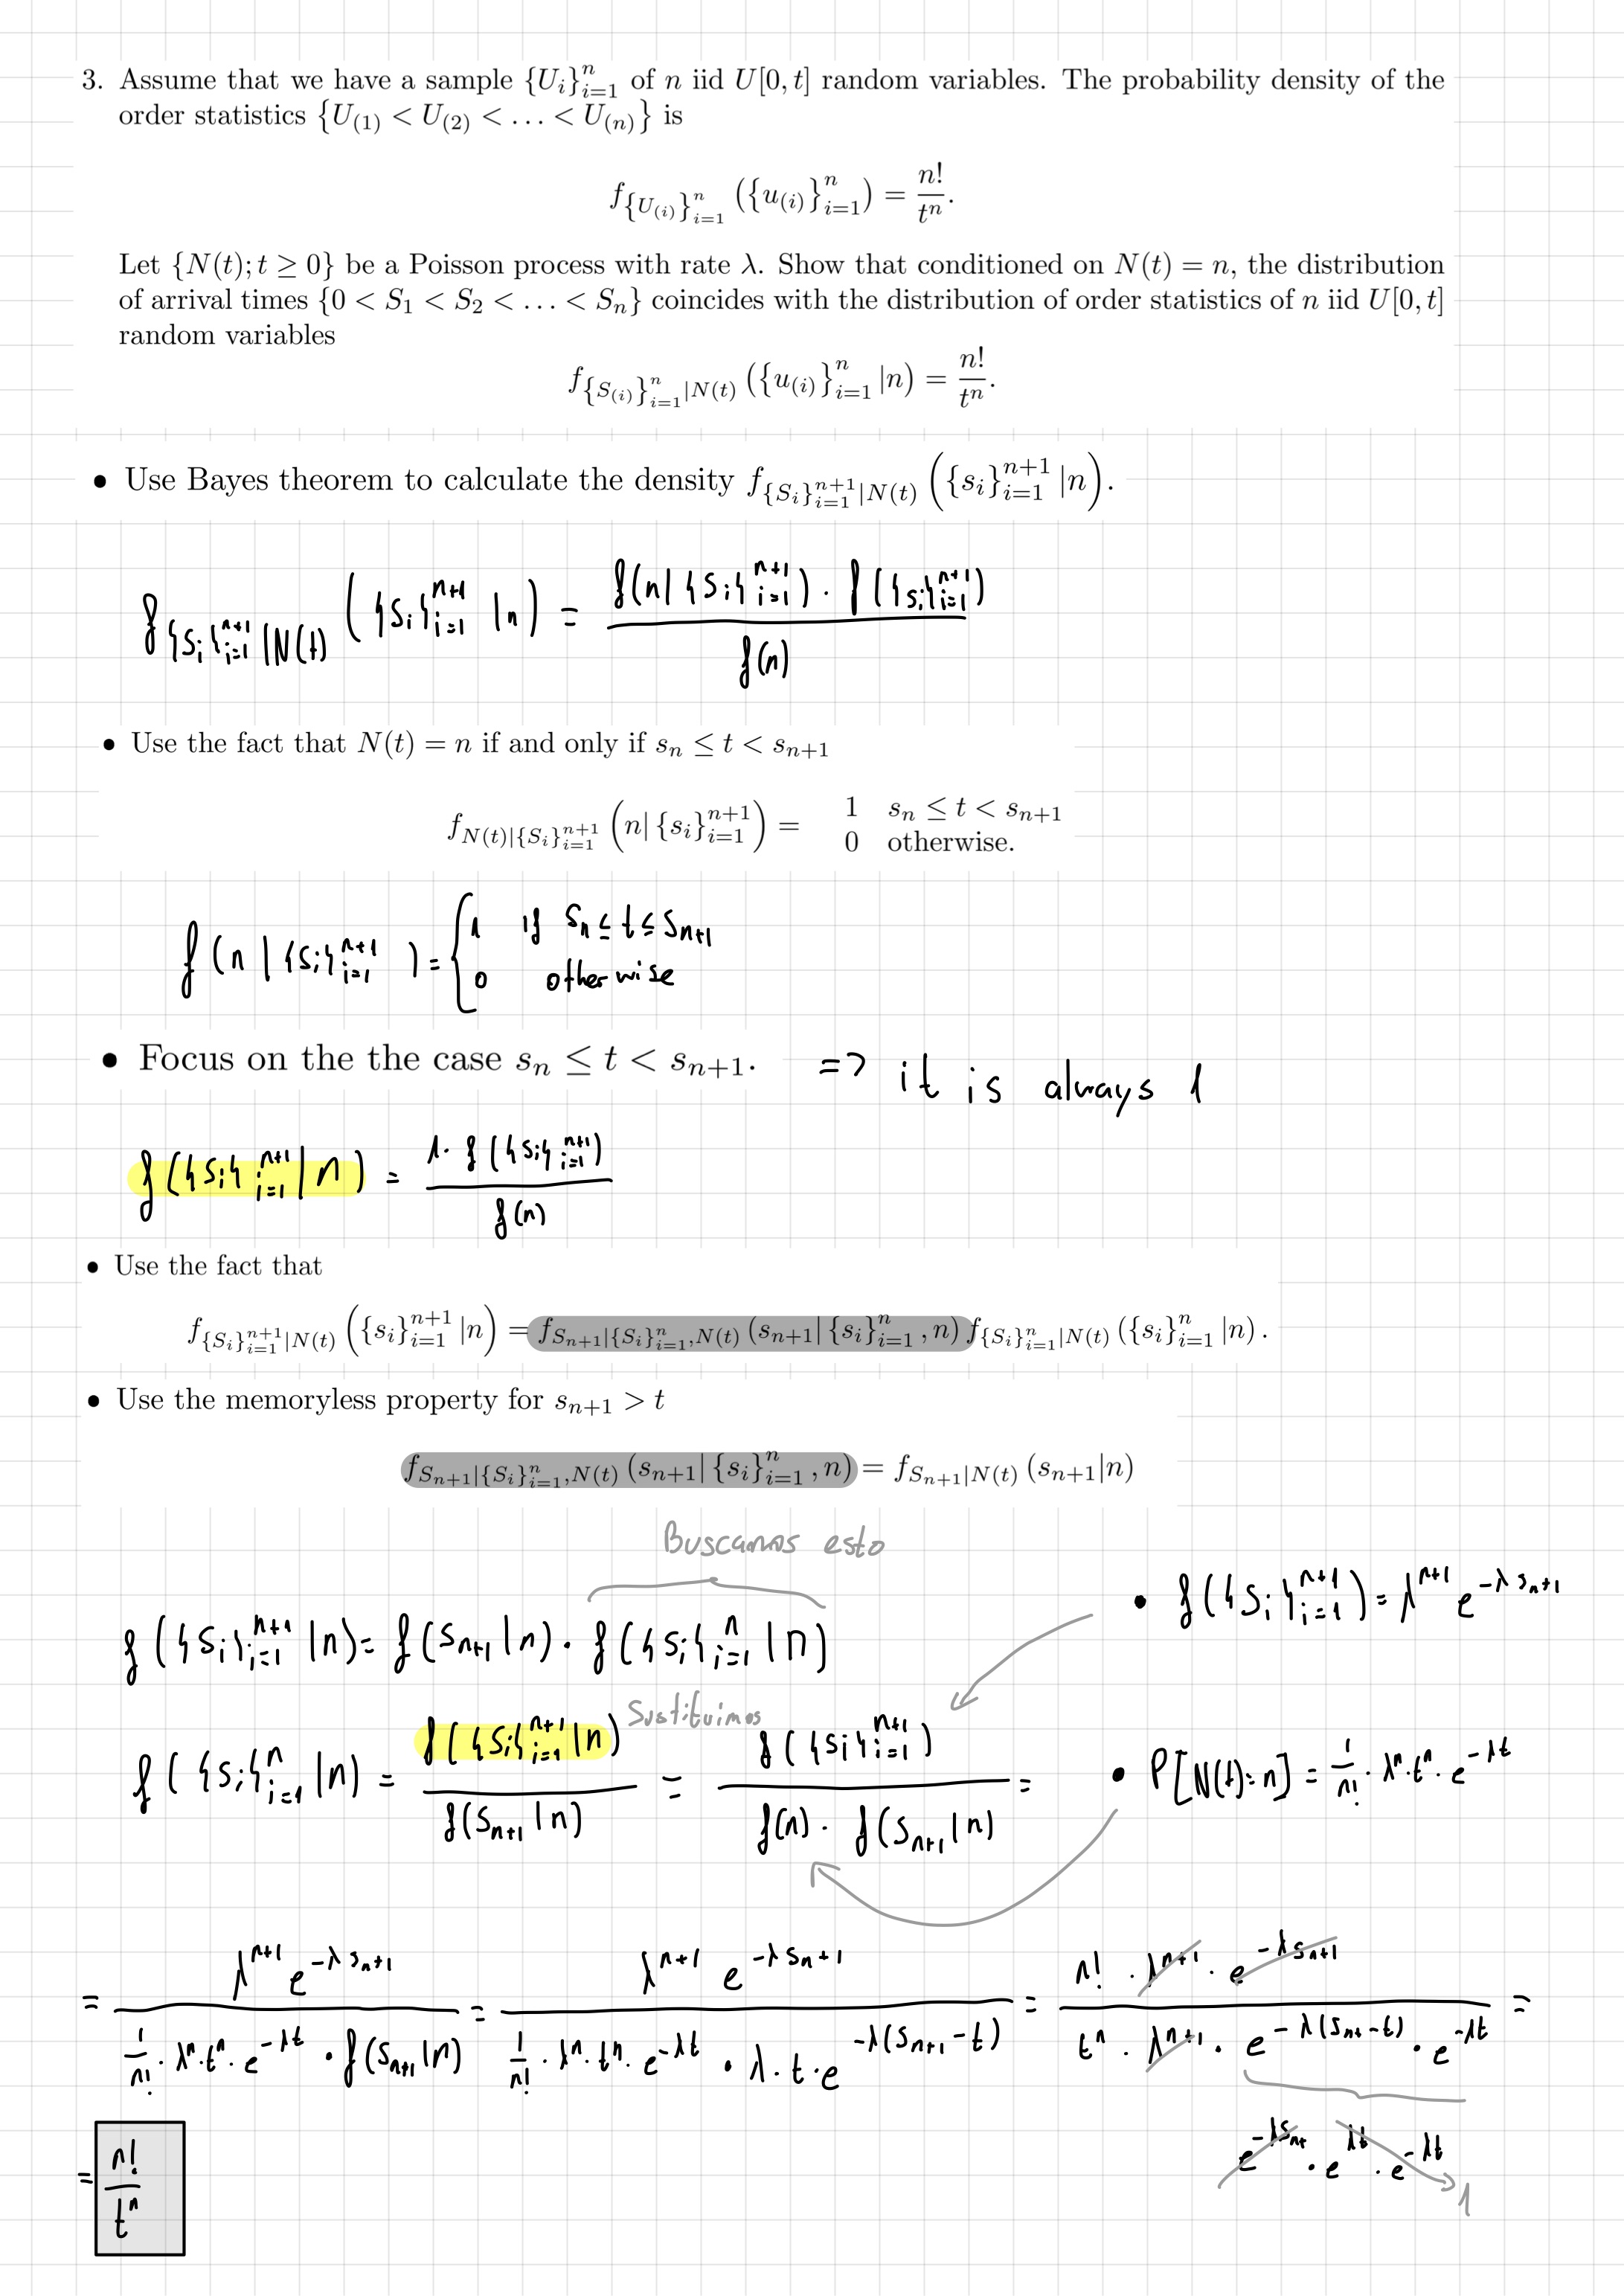 3. Assume that we have a sample {U_i}_{i=1}^n of n iid U[0, t] random variables. The probability density of the
order statistics {U_(1) < U_(2) < … < U_(n)} is
f_{{U_(i)}_{i=1}^n} ({u_(i)}_{i=1}^n) = n!/t^n.
Let {N(t); t ≥ 0} be a Poisson process with rate λ. Show that conditioned on N(t) = n, the distribution
of arrival times {0 < S_1 < S_2 < … < S_n} coincides with the distribution of order statistics of n iid U[0, t]
random variables
f_{{S_(i)}_{i=1}^n|N(t)} ({u_(i)}_{i=1}^n |n) = n!/t^n.
• Use Bayes theorem to calculate the density f_{{S_i}_{i=1}^{n+1}|N(t)} ({s_i}_{i=1}^{n+1} |n).
f_{{S_i}_{i=1}^{n+1}|N(t)} ({s_i}_{i=1}^{n+1} |n) = f(n|{s_i}_{i=1}^{n+1}) · f({s_i}_{i=1}^{n+1}) / f(n)
• Use the fact that N(t) = n if and only if s_n ≤ t < s_{n+1}
f_{N(t)|{S_i}_{i=1}^{n+1}} (n| {s_i}_{i=1}^{n+1}) = 1 s_n ≤ t < s_{n+1}
0 otherwise.
f(n | {s_i}_{i=1}^{n+1}) = { 1 if s_n ≤ t ≤ s_{n+1}
0 otherwise
• Focus on the the case s_n ≤ t < s_{n+1}. => it is always 1
f({s_i}_{i=1}^{n+1} | n) = 1 · f({s_i}_{i=1}^{n+1}) / f(n)
• Use the fact that
f_{{S_i}_{i=1}^{n+1}|N(t)} ({s_i}_{i=1}^{n+1} |n) = f_{S_{n+1}|{S_i}_{i=1}^n,N(t)} (s_{n+1}| {s_i}_{i=1}^n , n) f_{{S_i}_{i=1}^n|N(t)} ({s_i}_{i=1}^n |n).
• Use the memoryless property for s_{n+1} > t
f_{S_{n+1}|{S_i}_{i=1}^n,N(t)} (s_{n+1}| {s_i}_{i=1}^n , n) = f_{S_{n+1}|N(t)} (s_{n+1}|n)
Buscamos esto
• f({s_i}_{i=1}^{n+1}) = λ^{n+1} e^{-λ s_{n+1}}
f({s_i}_{i=1}^{n+1} |n) = f(s_{n+1} |n) · f({s_i}_{i=1}^n |n)
Sustituimos
f({s_i}_{i=1}^n |n) = f({s_i}_{i=1}^{n+1} |n) / f(s_{n+1} |n) = f({s_i}_{i=1}^{n+1}) / f(n) · f(s_{n+1} |n) =
• P[N(t)=n] = 1/n! · λ^n · t^n · e^{-λt}
= λ^{n+1} e^{-λ s_{n+1}} / 1/n! · λ^n · t^n · e^{-λt} · f(s_{n+1} |n) = λ^{n+1} e^{-λ s_{n+1}} / 1/n! · λ^n · t^n · e^{-λt} · λ · t · e^{-λ(s_{n+1} - t)} = n! · λ^{n+1} · e^{-λ s_{n+1}} / t^n · λ^{n+1} · e^{-λ(s_{n+} - t)} · e^{-λt} =
e^{-λ s_{n+}} · e^{λt} · e^{-λt} 1
= n!/t^n